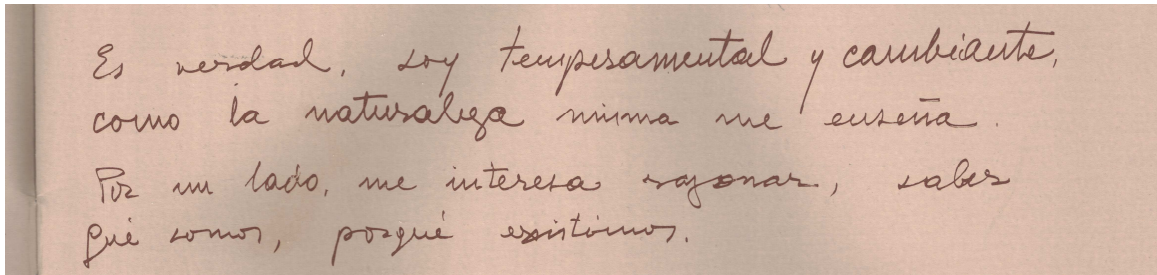 Es verdad, soy temperamental y cambiante,
como la naturaleza misma me enseña.
Por un lado, me interesa razonar, saber
qué somos, porqué existimos.